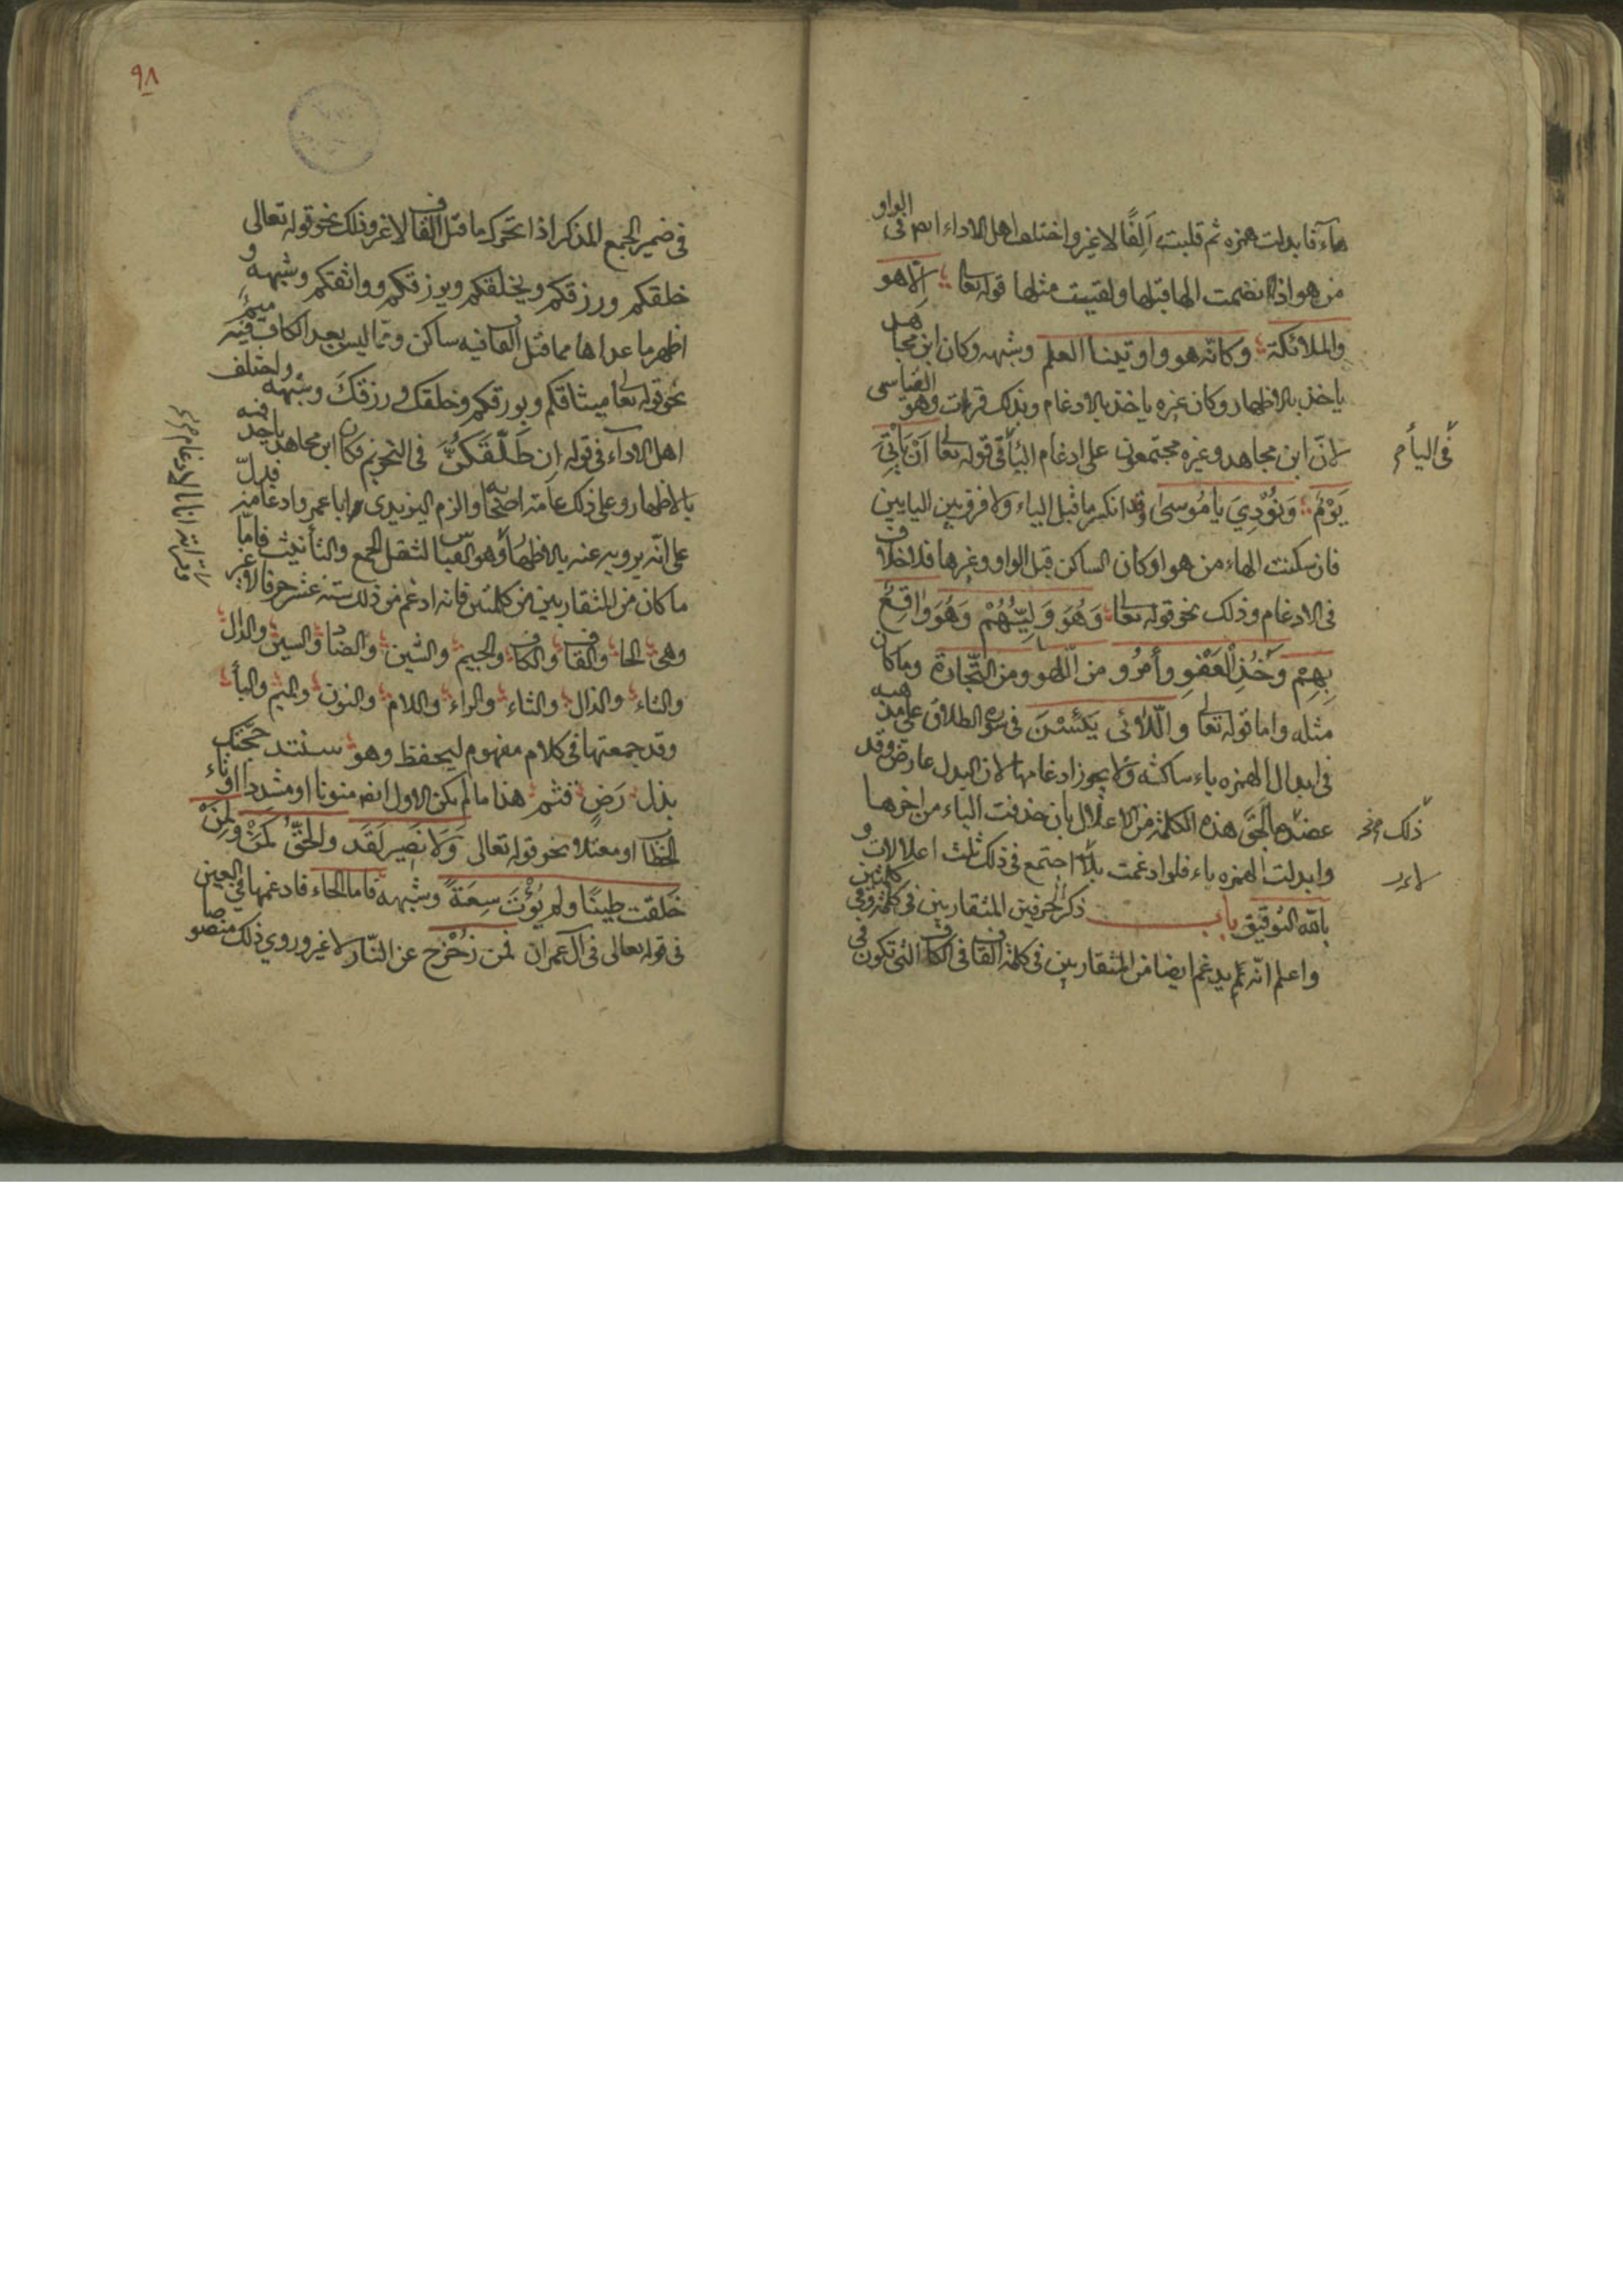 هاء فابدلت همزه ثم قلبت الفا لا غير واختلف اهل الاداء ايضا فى الواو
من هو اذا انضمت الها قبلها ولقيت مثلها نحو قوله تعالى الا هو
والملائكة وكانه هو واوتينا العلم وشبهه وكان ابن مجاهد
ياخذ بالاظهار وكان غيره ياخذ بالادغام وبذلك قرات وهو القياس
لان ابن مجاهد وغيره مجتمعون على ادغام الياء فى قوله تعالى ان ياتى
فى الياء
يَوْمٌ وَنُوْدِيَ يا مُوسى وقد انكسر ما قبل الياء ولا فرق بين اليايين
فان سكنت الهاء من هو او كان الساكن قبل الواو وغيرها فلا خلاف
فى الادغام وذلك نحو قوله تعالى وَهُوَ وَلِيُّهُمْ وَهُوَ وَاقِعٌ
بِهِمْ وَخُذِ الْعَفْوَ وأمُرْ ومن اللهو ومن التّجارة وما كان
مثله واما قوله تعالى واللّائى يَئِسْنَ فى سورة الطلاق على مذهبه
فى ابدال الهمزه ياء ساكنة فلا يجوز ادغامها لان البدل عارض وقد
هذه الكلمة من الاعلال بان حذفت الياء من اخرها
ذلك
وابدلت الهمزه ياء فلو ادغمت اجتمع فى ذلك ثلث اعلالات و
بالله التوفيق باب ذكر الحرفين المتقاربين فى كلمة وفى كلمتين
واعلم انّه لم يدغم ايضا من المتقاربين فى كلمة القاف فى الكاف التى تكون فى
٩٨
فى ضمير الجمع المذكر اذا تحرك ما قبل القاف لا غير وذلك نحو قوله تعالى
خلقكم ورزقكم ويخلقكم ويرزقكم وواثقكم وشبهه و
اظهر ما عداها مما قبل القاف فيه ساكن وممّا ليس بعد الكاف فيه ميم
نحو قوله تعالى ميثاقكم وبورقكم وخلقك ورزقك وشبهه واختلف
اهل الاداء فى قوله ان طَلَّقَكُنَّ فى التحريم فكان ابن مجاهد ياخذ فيه
بالاظهار وعلى ذلك عامة اصحابه والزم اليزيدى ابا عمرو ادغامه فدلّ
على انّه يرويه عنه بالاظهار وهو القياس لثقل الجمع والتأنيث فامّا
ما كان من المتقاربين من كلمتين فانه ادغم من ذلك ستة عشر حرفا لا غير
وهى الحا والقاف والكاف والجيم والشين والضاد والسين والدال
والتاء والذال والثاء والراء واللام والنون والميم والبا
وقد جمعتها فى كلام مفهوم ليحفظ وهو سنشد حجتك
بذل رَضٍ قثم هذا ما لم يكن الاول ايضا منونا او مشددا او تاء
الخطاب او معتلا نحو قوله تعالى وَلَا نَصِير لَقَد والحَقُّ كَمَنْ ولِمَنْ
خَلَقت طينًا ولم يُؤْتَ سَعَةً وشبهه فاما الحاء فادغمها فى العين
فى قوله تعالى فى آل عمران فمن زُحْزِح عن النّار لا غير وروى ذلك منصوصا